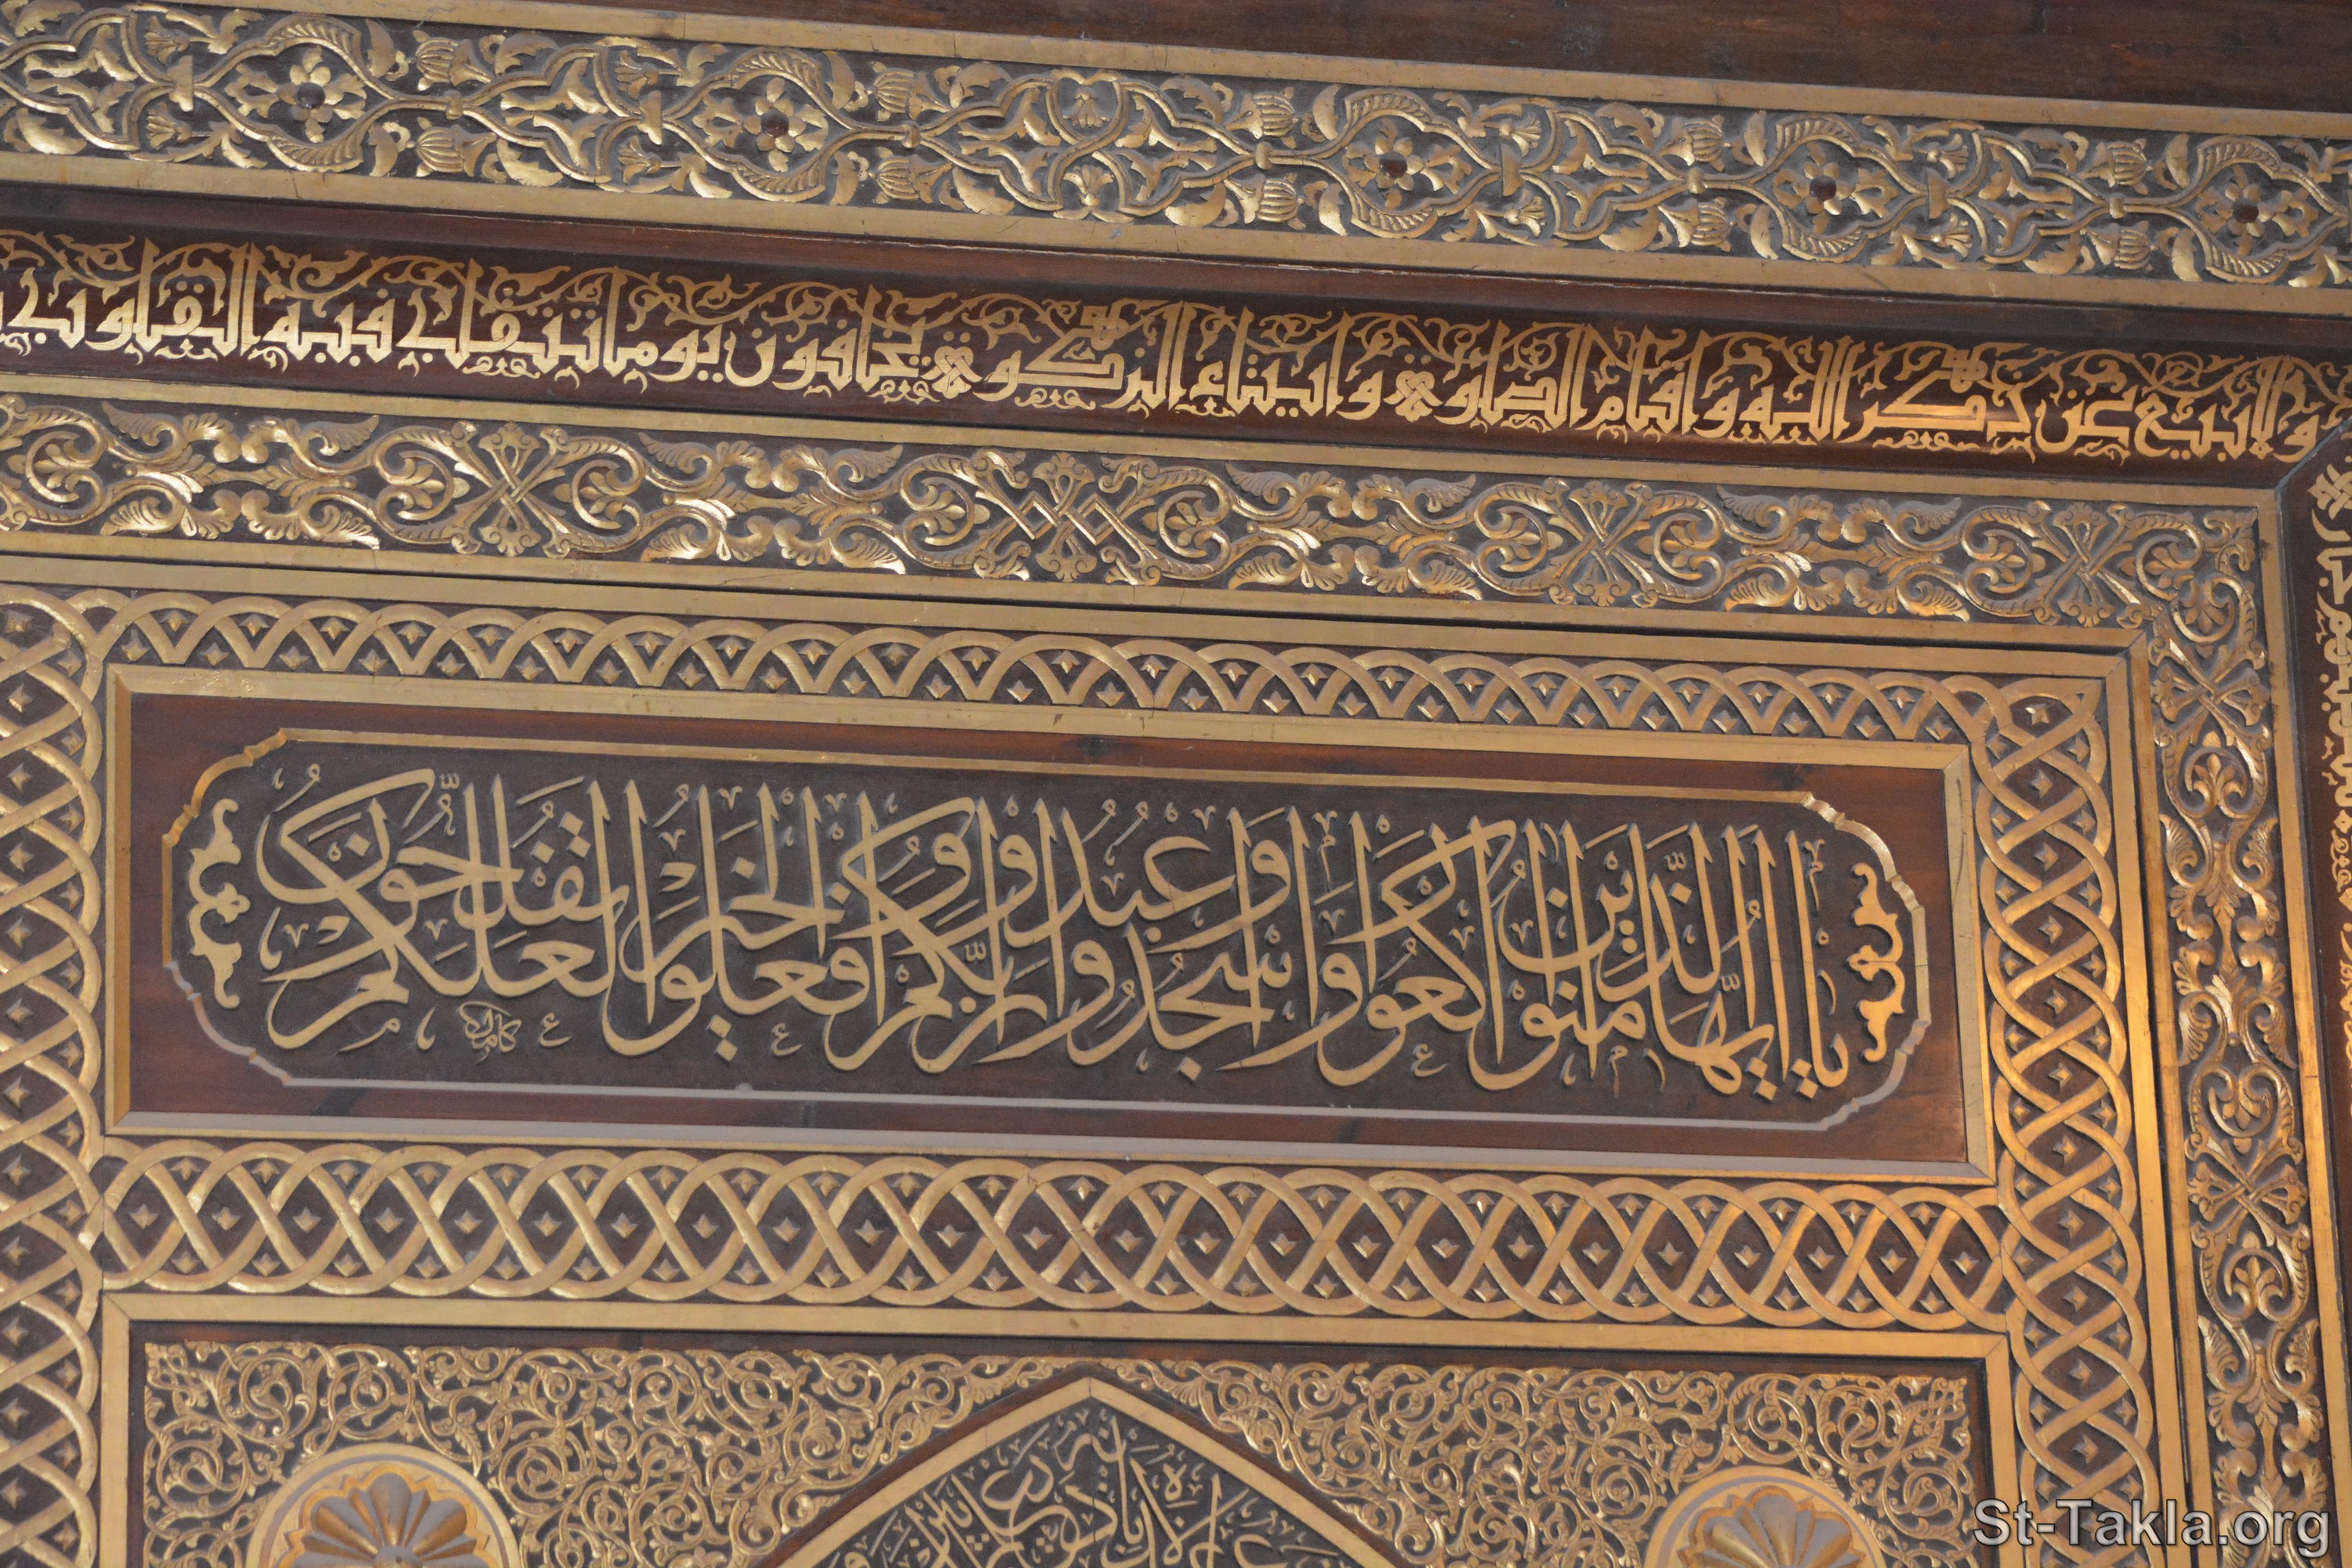 ولا بيع عن ذكر الله وإقام الصلوة وإيتاء الزكوة يخافون يوما تتقلب فيه القلوب
يا أيها الذين آمنوا اركعوا واسجدوا واعبدوا ربكم وافعلوا الخير لعلكم تفلحون
St-Takla.org